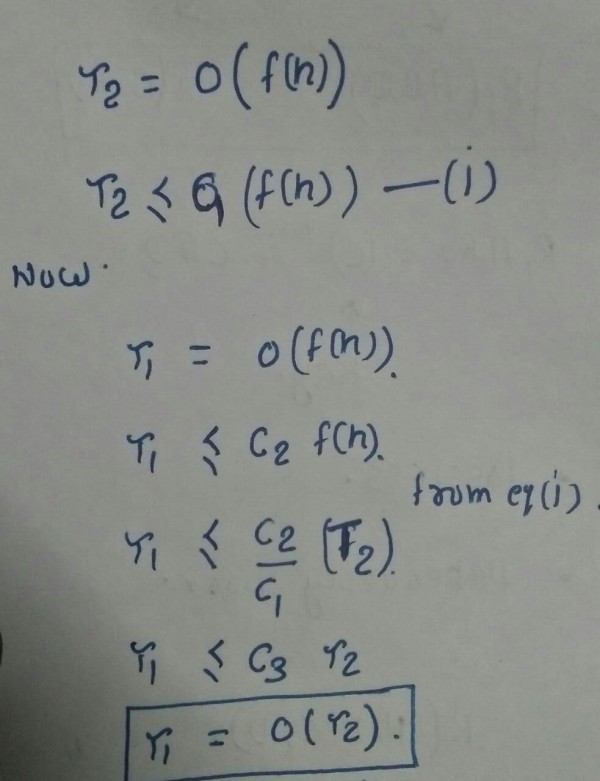 T₂ = O(f(n))
T₂ ≤ C₁ (f(n)) —(i)
Now.
T₁ = O(f(n)).
T₁ ≤ C₂ f(n).
from eq(i).
T₁ ≤ C₂/C₁ (T₂).
T₁ ≤ C₃ T₂
T₁ = O(T₂).